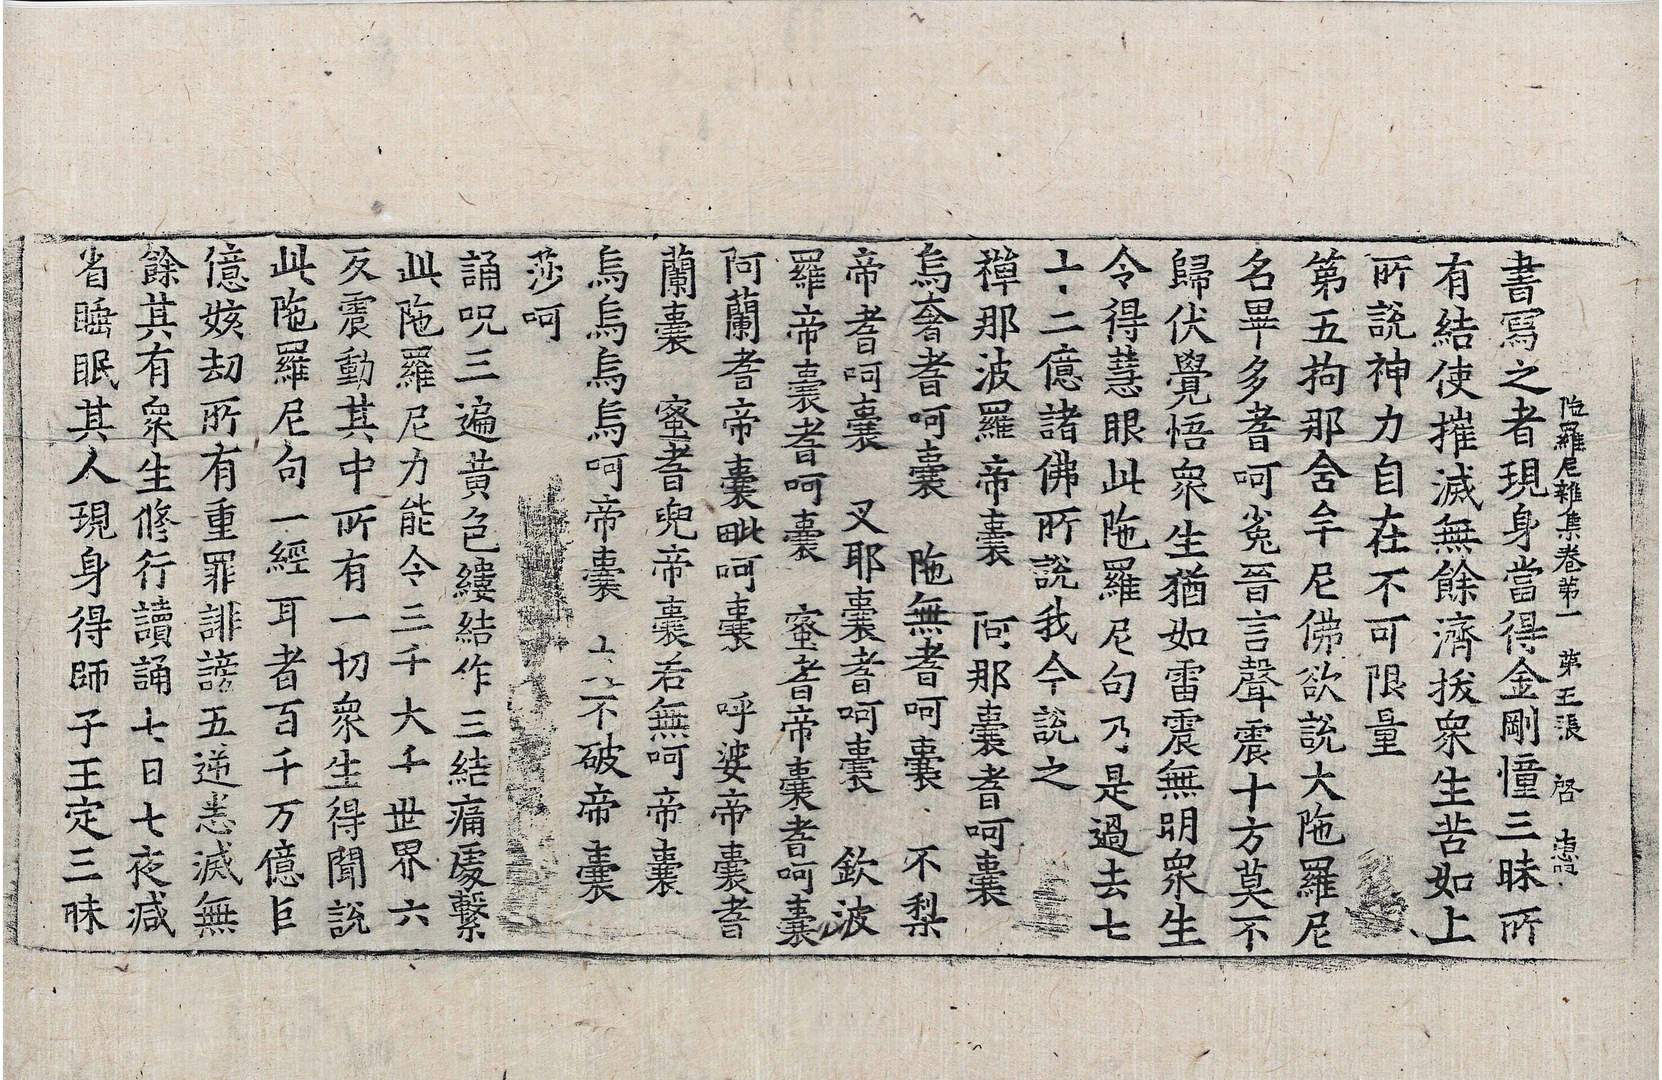 陁羅尼雜集卷第一 第五張 啓
書寫之者現身當得金剛憧三昧所
有結使摧滅無餘濟拔衆生苦如上
所說神力自在不可限量
第五拘那舍牟尼佛欲說大陁羅尼
名畢多耆呵㝹晉言聲震十方莫不
歸伏覺悟衆生猶如雷震無明衆生
令得慧眼此陁羅尼句乃是過去七
十二億諸佛所說我今說之
禪那波羅帝囊 阿那囊耆呵囊
烏奢耆呵囊 陁無耆呵囊 不梨
帝耆呵囊 叉耶囊耆呵囊 欽波
羅帝囊耆呵囊 蜜耆帝囊耆呵囊
阿蘭耆帝囊毗呵囊 呼婆帝囊耆
蘭囊 蜜耆兜帝囊若無呵帝囊
烏烏烏烏呵帝囊 不破帝囊
莎呵
誦呪三遍黃色縷結作三結痛處繫
此陁羅尼力能令三千大千世界六
反震動其中所有一切衆生得聞說
此陁羅尼句一經耳者百千万億巨
億姟劫所有重罪誹謗五逆悉滅無
餘其有衆生修行讀誦七日七夜減
省睡眠其人現身得師子王定三昧